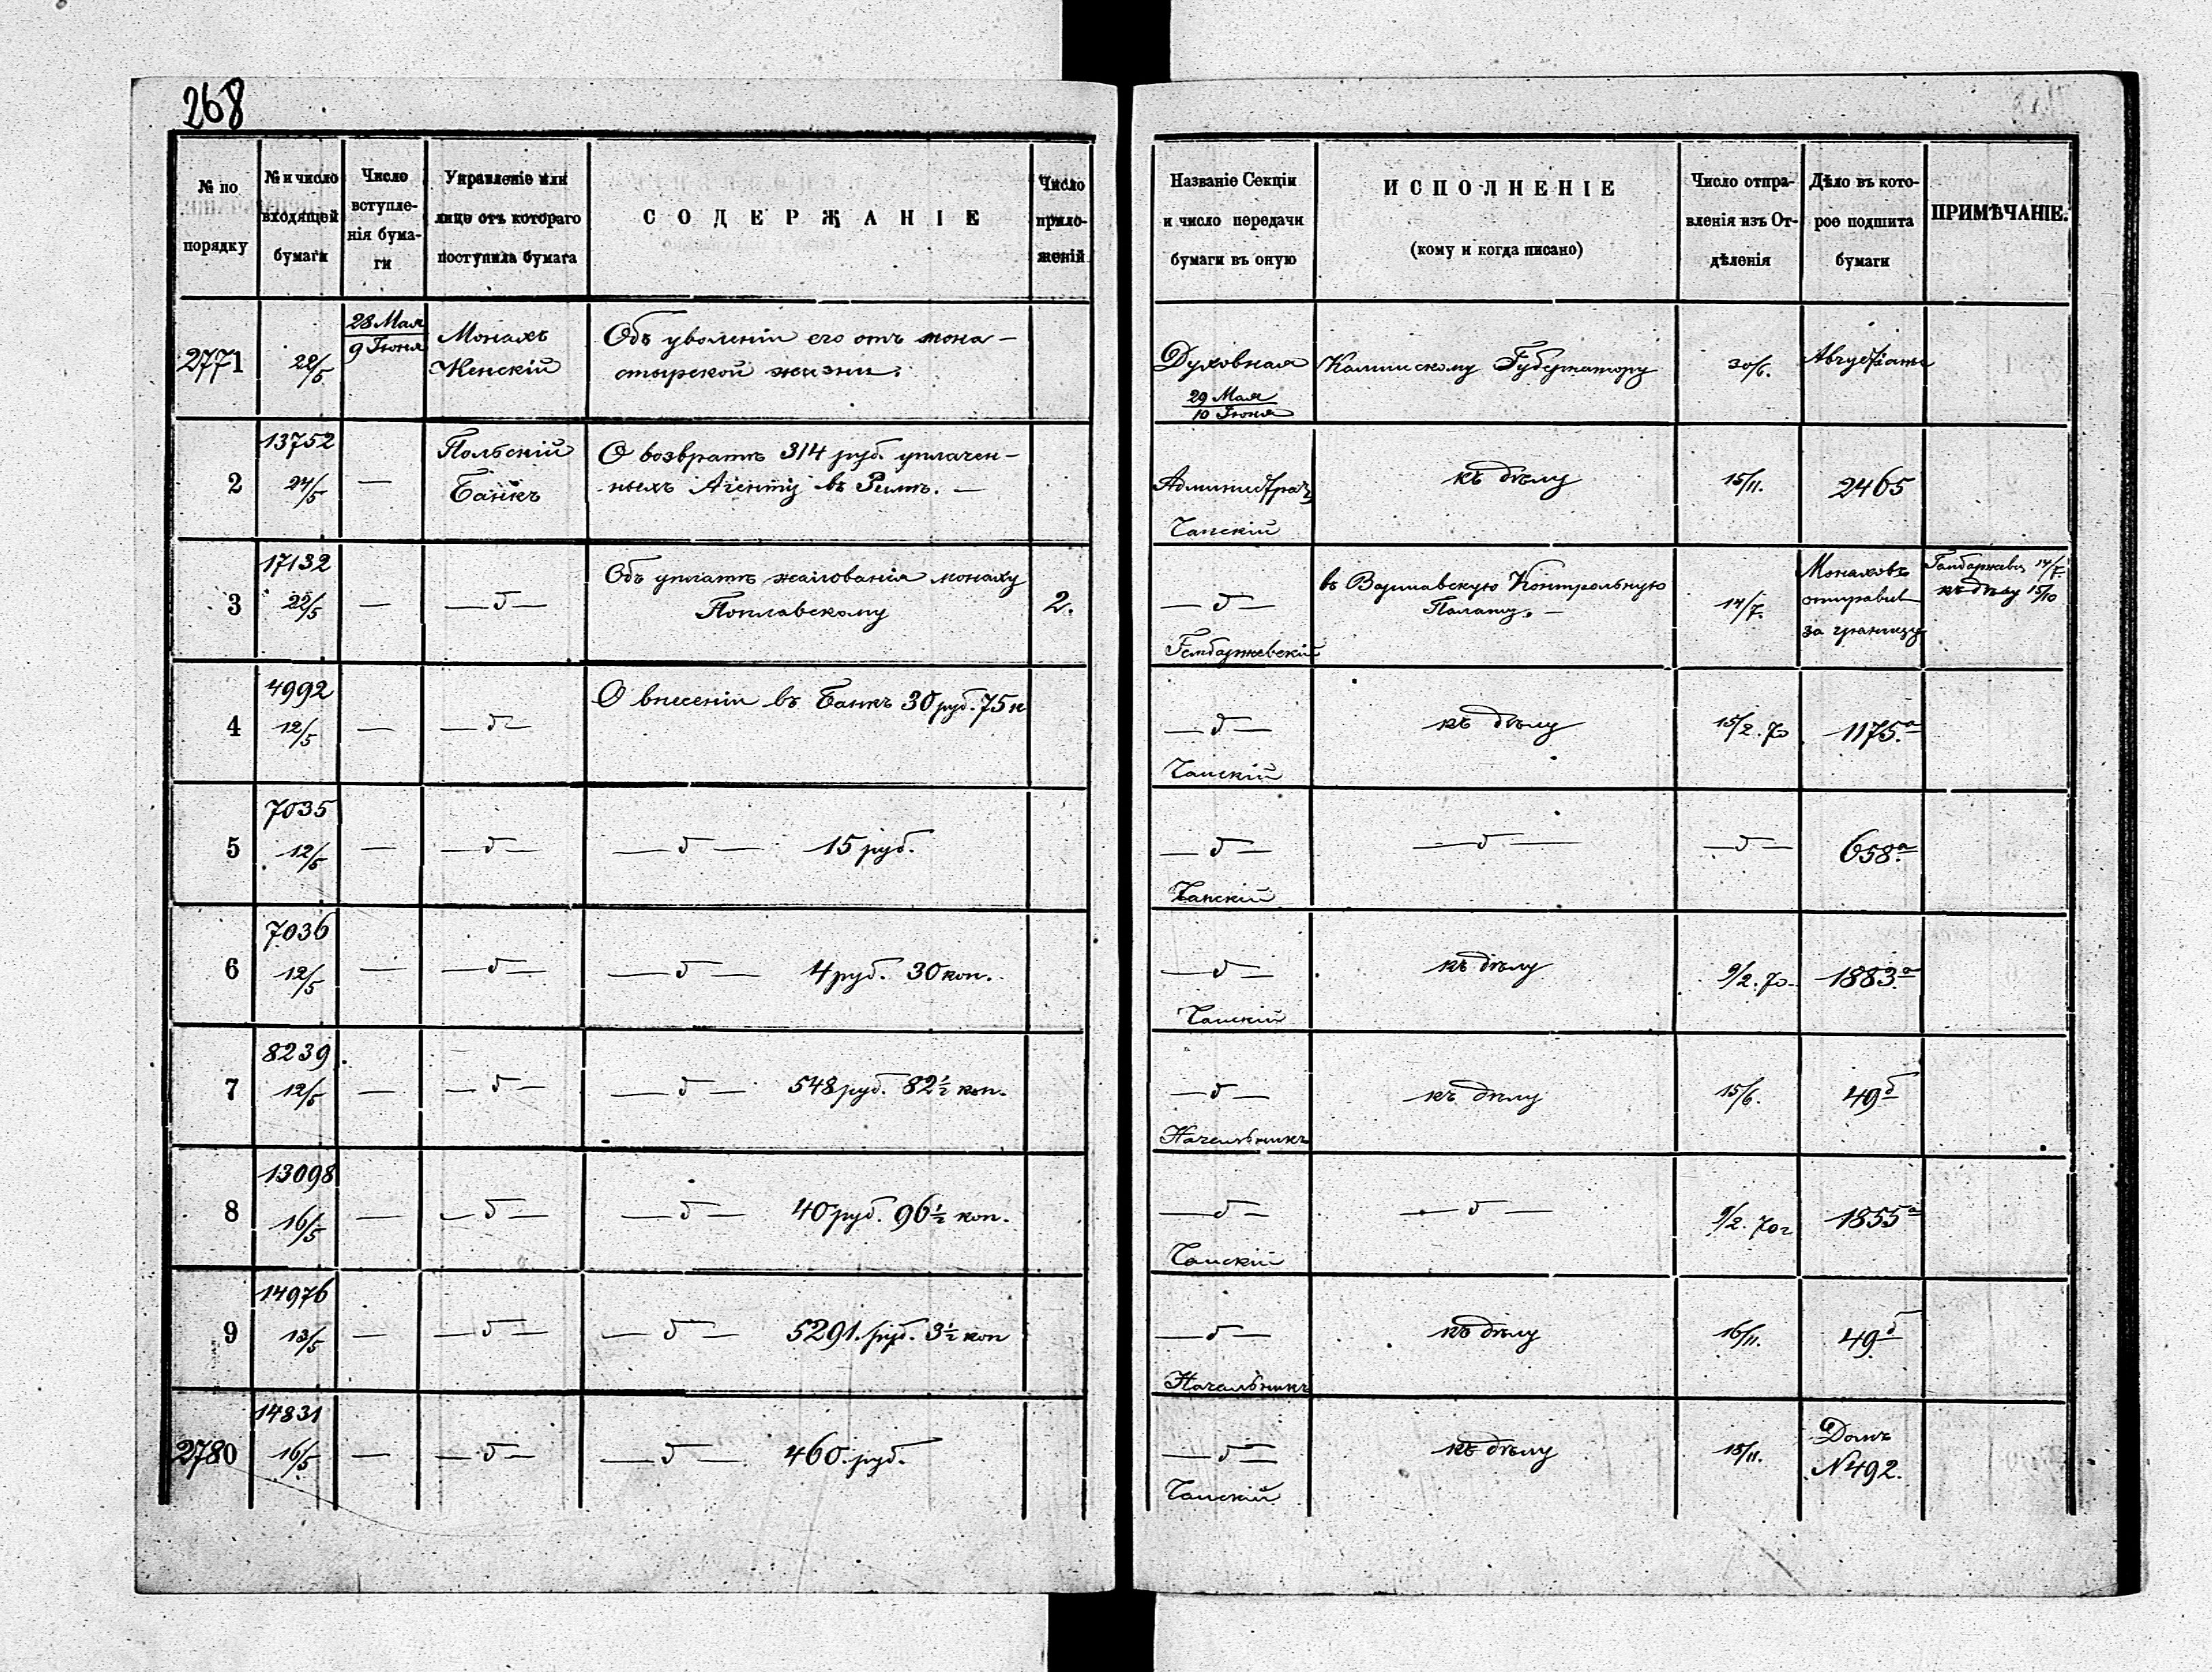 268
№ по порядку
№ и число входящей бумаги
Число вступле-нія бума-ги
Управленіе или лице отъ котораго поступила бумага
СОДЕРЖАНІЕ
Число прило-женій
Названіе Секціи и число передачи бумаги въ оную
ИСПОЛНЕНІЕ
(кому и когда писано)
Число отпра-вленія изъ От-дѣленія
Дѣло въ кото-рое подшита бумаги
ПРИМѢЧАНІЕ.
2771
28/5
28 Мая
9 Іюня
Монахъ
Женскій
Объ уволеніи его отъ мона-
стырской жизни.
Духовная
29 Мая
10 Іюня
Калишскому Губернатору
30/6.
2
13752
24/5
—
Польскій
Банкъ
О возвратѣ 314 руб. уплачен-
ныхъ Агенту въ Римѣ. —
Администрац
Чапскій
къ дѣлу
15/11.
2465
3
17132
22/5
—
— д —
Объ уплатѣ жалованія монаху
Поплавскому
2.
— д —
въ Варшавскую Контрольную
Палату. —
14/7.
Монаховъ
отправл
за границу
14/7.
къ дѣлу 15/10
4
4992
12/5
—
— д —
О внесеніи въ Банкъ 30 руб. 75 к
— д —
Чапскій
къ дѣлу
15/2. 70
1175.а
5
7035
12/5
—
— д —
— д — 15 руб.
— д —
Чапскій
— д —
— д —
658.а
6
7036
12/5
—
— д —
— д — 4 руб. 30 коп.
— д —
Чапскій
къ дѣлу
9/2. 70
1883.а
7
8239
12/5
—
— д —
— д — 548 руб. 82½ коп.
— д —
Начальникъ
къ дѣлу
15/6.
49 б
8
13098
16/5
—
— д —
— д — 40 руб. 96½ коп.
— д —
Чапскій
— д —
9/2. 70 г
1855 а
9
14976
13/5
—
— д —
— д — 5291. руб. 3½ коп
— д —
Начальникъ
къ дѣлу
16/11.
49 б
2780
14831
16/5
—
— д —
— д — 460. руб.
— д —
Чапскій
къ дѣлу
18/11.
Домъ
N 492.